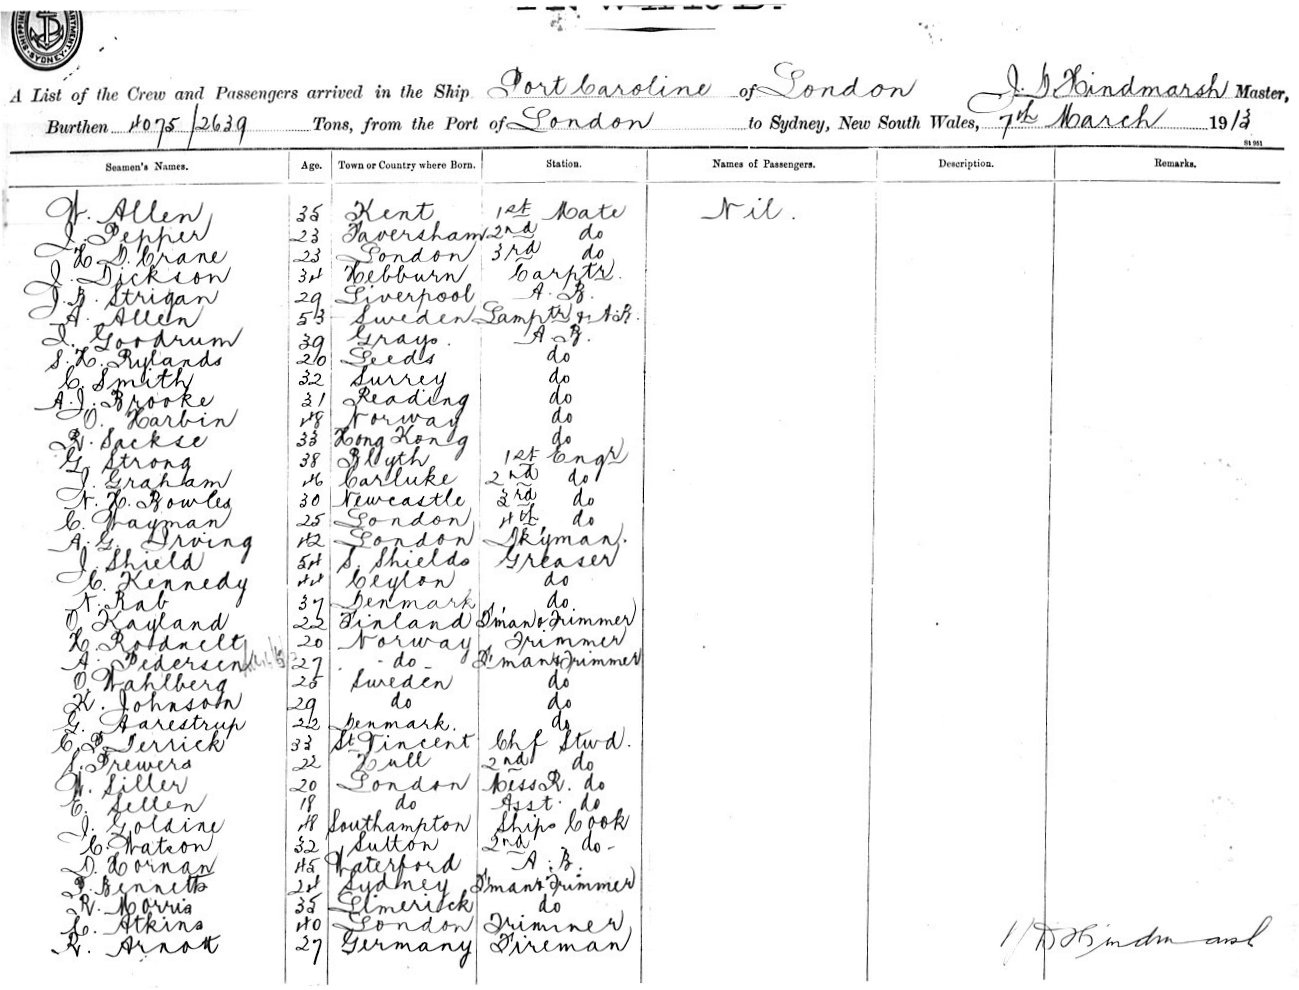 SHIPPING DEPARTMENT. SYDNEY
INWARD.
A List of the Crew and Passengers arrived in the Ship Port Caroline of London J. D Hindmarsh Master,
Burthen 4075/2639 Tons, from the Port of London to Sydney, New South Wales, 7th March 1913
Seamen's Names. Age. Town or Country where Born. Station. Names of Passengers. Description. Remarks.
W. Allen 35 Kent 1st Mate Nil.
J. Pepper 23 Faversham 2nd do
H D. Crane 23 London 3rd do
J. Dickson 34 Hebburn Carptr.
J. B. Strigan 29 Liverpool A. B.
A. Allen 53 Sweden Lamptr & A.B.
I. Goodrum 39 Grays. A B.
S. H. Rylands 20 Leeds do
C. Smith 32 Surrey do
A. J. Brooke 31 Reading do
O. Harbin 48 Norway do
R. Sackse 33 Hong Kong do
G. Strong 38 Blyth 1st Engr
J. Graham 46 Carluke 2nd do
N. H. Bowles 30 Newcastle 3rd do
C. Wayman 25 London 4th do
A. G. Irving 42 London Dkyman.
J. Shield 54 S. Shields Greaser
C. Kennedy 44 Ceylon do
N. Rab 37 Denmark do.
O. Kayland 22 Finland F'man & Trimmer
H. Roodnelt 20 Norway Trimmer
A. Pedersen 27 - do - F'man & Trimmer
O. Wahlberg 25 Sweden do
K. Johnson 29 do do
G. Aarestrup 22 Denmark. do
C. P Derrick 33 St Vincent Chf Stwd.
S. Prewers 22 Hull 2nd do
W. Siller 20 London Mess R. do
E. Sellen 18 do Asst. do
J. Goldine 48 Southampton Ships Cook
C. Watson 32 Sutton 2nd do -
D. Hornan 45 Waterford A. B.
P. Bennett 24 Sydney F'man & Trimmer
R. Morris 35 Limerick do
C. Atkins 40 London Trimmer
R. Arnott 27 Germany Fireman
J D Hindmarsh